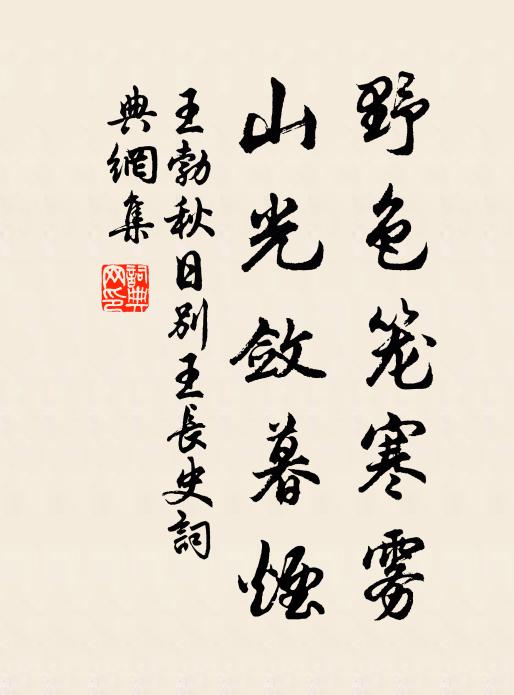 野色笼寒雾
山光敛暮煙
王勃秋日别王長史詞
典網集
詞典网印